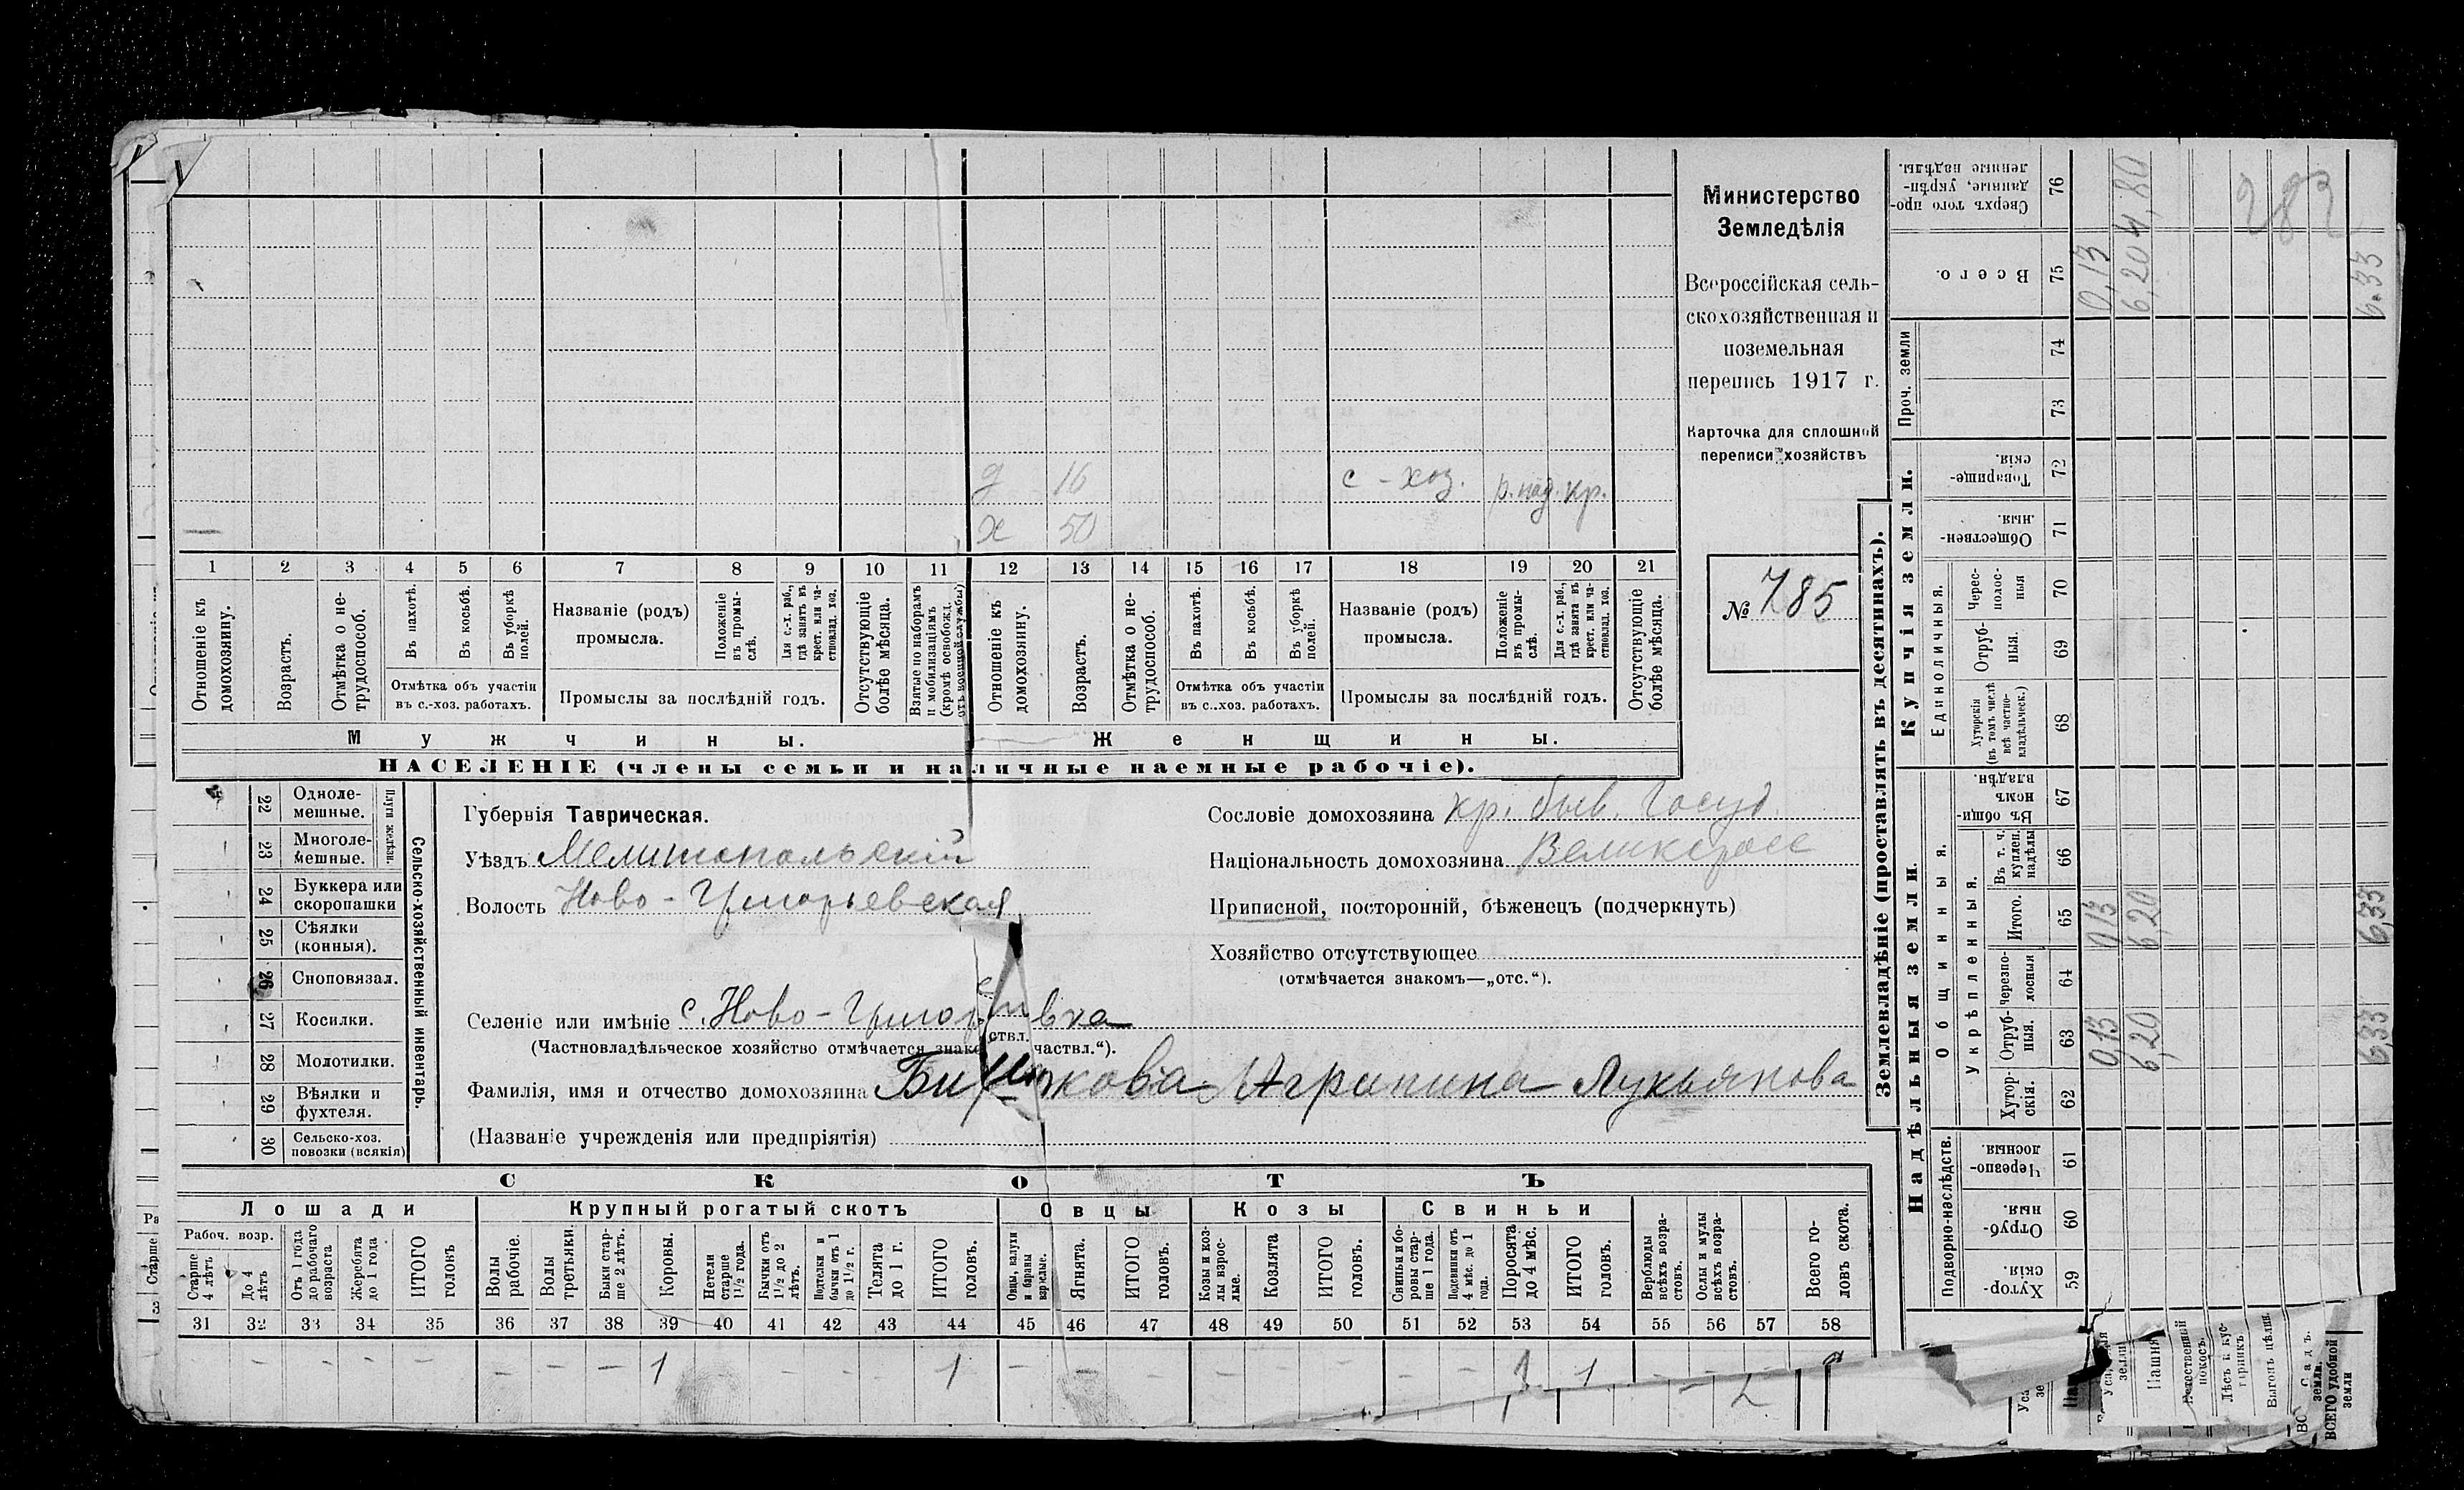 Министерство
Земледѣлія
Всероссійская сель-
скохозяйственная и
поземельная
перепись 1917 г.
Карточка для сплошной
переписи хозяйствъ
№ 785
д 16 с-хоз. р. над. кр.
х 50
1 2 3 4 5 6 7 8 9 10 11 12 13 14 15 16 17 18 19 20 21
Отношеніе къ домохозяину.
Возрастъ.
Отмѣтка о не-трудоспособ.
Въ пахотѣ.
Въ косьбѣ.
Въ уборкѣ полей.
Отмѣтка объ участіи въ с.-хоз. работахъ.
Названіе (родъ) промысла.
Положеніе въ промы-слѣ.
Для с.-х. раб., гдѣ занятъ въ крест. или ча-стновлад. хоз.
Промыслы за послѣдній годъ.
Отсутствующіе болѣе мѣсяца.
Взятые по наборамъ и мобилизаціямъ (кромѣ освобожд. отъ военной службы)
Отношеніе къ домохозяину.
Возрастъ.
Отмѣтка о не-трудоспособ.
Въ пахотѣ.
Въ косьбѣ.
Въ уборкѣ полей.
Отмѣтка объ участіи въ с.-хоз. работахъ.
Названіе (родъ) промысла.
Положеніе въ промы-слѣ.
Для с.-х. раб., гдѣ занята въ крест. или ча-стновлад. хоз.
Промыслы за послѣдній годъ.
Отсутствующіе болѣе мѣсяца.
Мужчины. Женщины.
НАСЕЛЕНІЕ (члены семьи и наличные наемные рабочіе).
Сельско-хозяйственный инвентарь.
Плуги желѣзн.
22 Одноле-мешные.
23 Многоле-мешные.
24 Буккера или скоропашки
25 Сѣялки (конныя).
26 Сноповязал.
27 Косилки.
28 Молотилки.
29 Вѣялки и фухтеля.
30 Сельско-хоз. повозки (всякія)
Губернія Таврическая.
Уѣздъ Мелитопольскій
Волость Ново-Григорьевская
Селеніе или имѣніе с. Ново-Григорьевка
(Частновладѣльческое хозяйство отмѣчается частвл.“).
Фамилія, имя и отчество домохозяина Агрипина Лукьянова
(Названіе учрежденія или предпріятія)
Сословіе домохозяина кр. быв. госуд.
Національность домохозяина Великоросс
Приписной, посторонній, бѣженецъ (подчеркнуть)
Хозяйство отсутствующее
(отмѣчается знакомъ—„отс.“).
СКОТЪ
Лошади Крупный рогатый скотъ Овцы Козы Свиньи
Рабоч. возр.
Старше 4 лѣтъ
До 4 лѣтъ
Отъ 1 года до рабочаго возраста
Жеребята до 1 года
ИТОГО головъ
Волы рабочіе.
Волы третьяки.
Быки стар-ше 2 лѣтъ.
Коровы.
Нетели старше 1½ года.
Бычки отъ 1½ до 2 лѣтъ.
Подтелки и бычки отъ 1 до 1½ г.
Телята до 1 г.
ИТОГО головъ.
Овцы, валухи и бараны взрослые.
Ягнята.
ИТОГО головъ.
Козы и коз-лы взрос-лые.
Козлята
ИТОГО головъ.
Свиньи и бо-ровы стар-ше 1 года.
Подсвинки отъ 4 мѣс. до 1 года.
Поросята до 4 мѣс.
ИТОГО головъ.
Верблюды всѣхъ возра-стовъ.
Ослы и мулы всѣхъ возра-стовъ.
Всего го-ловъ скота.
31 32 33 34 35 36 37 38 39 40 41 42 43 44 45 46 47 48 49 50 51 52 53 54 55 56 57 58
1 1 1 1
Землевладѣніе (проставлять въ десятинахъ).
Надѣльныя земли. Купчія земли. Проч. земли
Подворно-наслѣдств.
Общинныя.
Укрѣпленныя.
Единоличныя.
59 Хутор-скія.
60 Отруб-ныя.
61 Черезпо-лосныя.
62 Хутор-скія.
63 Отруб-ныя. 0,13 6,20 6,33
64 Черезпо-лосныя
65 Итого. 0,13 6,20 6,33
66 Въ т. ч. куплен. надѣлы
67 Въ общи-номъ владѣн.
68 Хуторскія (въ томъ числѣ всѣ частно-владѣльческ.)
69 Отруб-ныя.
70 Черес-полос-ныя
71 Обществен-ныя.
72 Товарище-скія.
73
74
75 Всего. 0,13 6,20 6.33
76 Сверхъ того про-данные, укрѣп-ленные надѣлы. 4,80
282
Пашня
Естественный покосъ.
Лѣсъ и кус-тарникъ
Выгонъ цѣлин.
ВСЕГО удобной земли